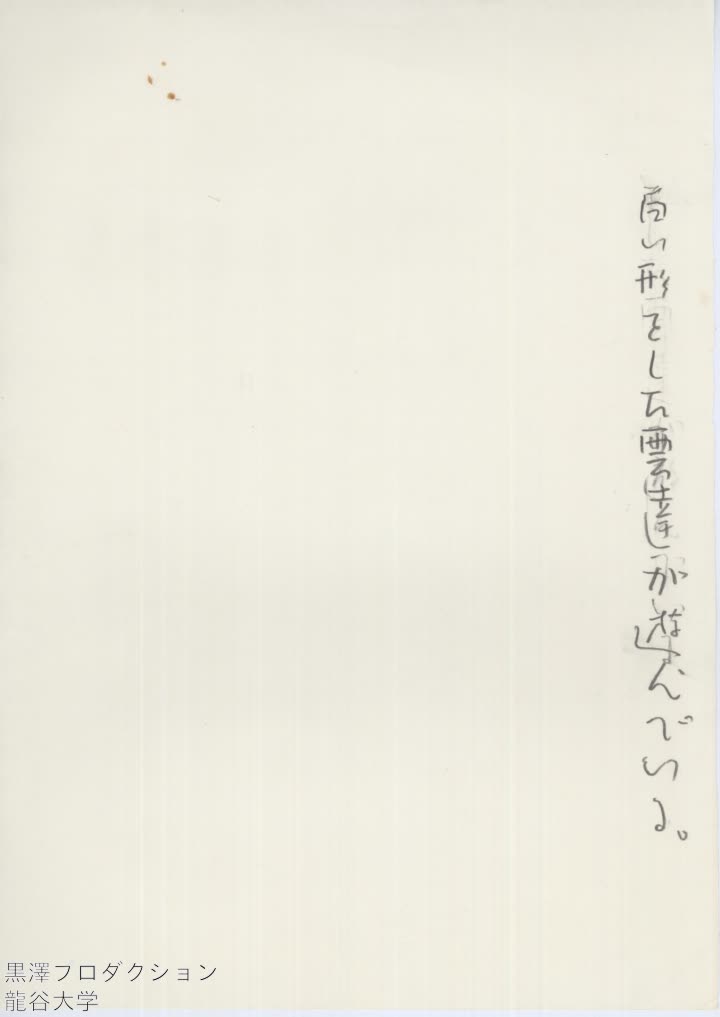 白い形をした雲達が遊んでいる。
黒澤プロダクション
龍谷大学